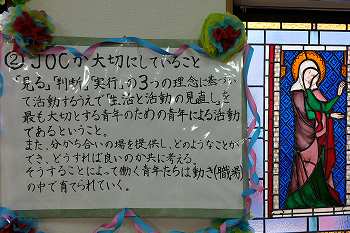 ② JOCが大切にしていること
「見る」「判断」「実行」の3つの理念に基づい
て活動するうえで「生活と活動の見直し」を
最も大切とする青年のための青年による活動
であるということ。
また、分かち合いの場を提供し、どのようなことが
でき、どうすれば良いのか共に考える。
そうすることによって働く青年たちは働き(職場)
の中で育てられていく。